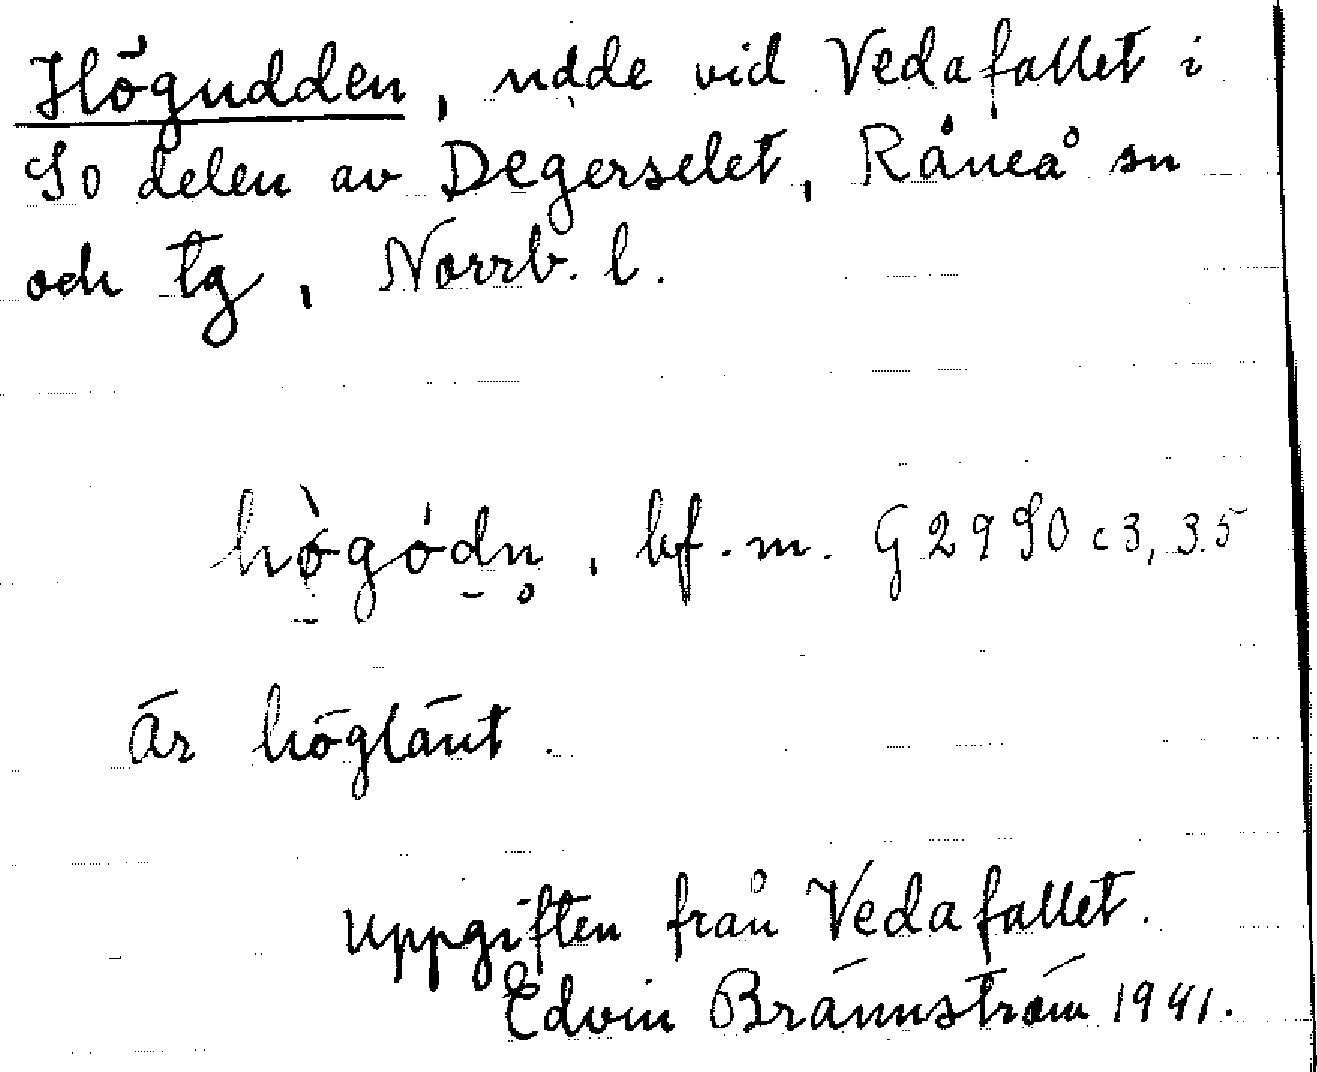 Högudden, udde vid Vedafallet i
So delen av Degerselet, Råneå sn
och tg, Norrb. l.
bf. m. G 2990 c 3, 35
Är höglänt.
Uppgiften från Vedafallet.
Edvin Brännström 1941.